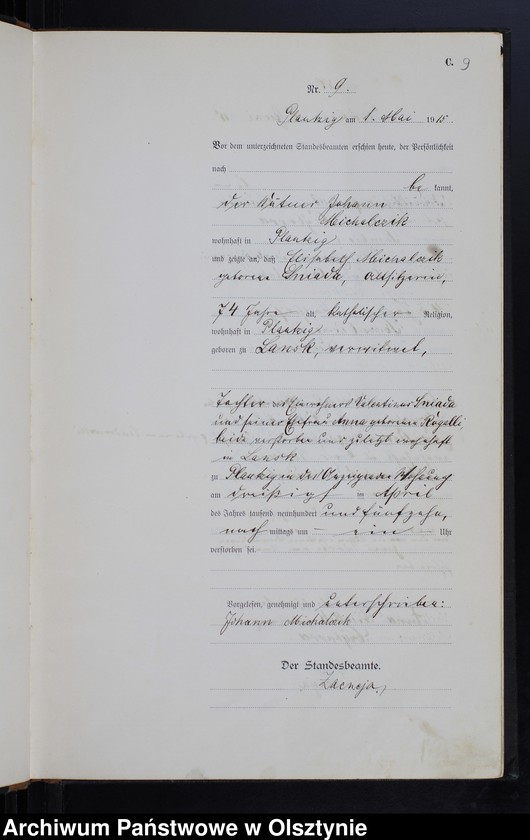 C. 9
Nr. 9.
Plautzig am 1. Mai 1915.
Vor dem unterzeichneten Standesbeamten erschien heute, der Persönlichkeit
nach
be kannt,
der Kätner Johann
Michalczik
wohnhaft in Plautzig
und zeigte an, daß Elisabeth Michalczik
geborene Sniada, Altsitzerin,
74 Jahre alt, katholischer Religion,
wohnhaft in Plautzig
geboren zu Lansk, verwitwet,
Tochter des Einwohners Valentinus Sniada
und seiner Ehefrau Anna geborenen
beide verstorben und zuletzt wohnhaft
in Lansk
zu Plautzig in des Anzeigenden Wohnung
am dreißigsten April
des Jahres tausend neunhundert und fünfzehn,
nach mittags um ein Uhr
verstorben sei.
Vorgelesen, genehmigt und unterschrieben:
Johann Michalczik
Der Standesbeamte.
Archiwum Państwowe w Olsztynie